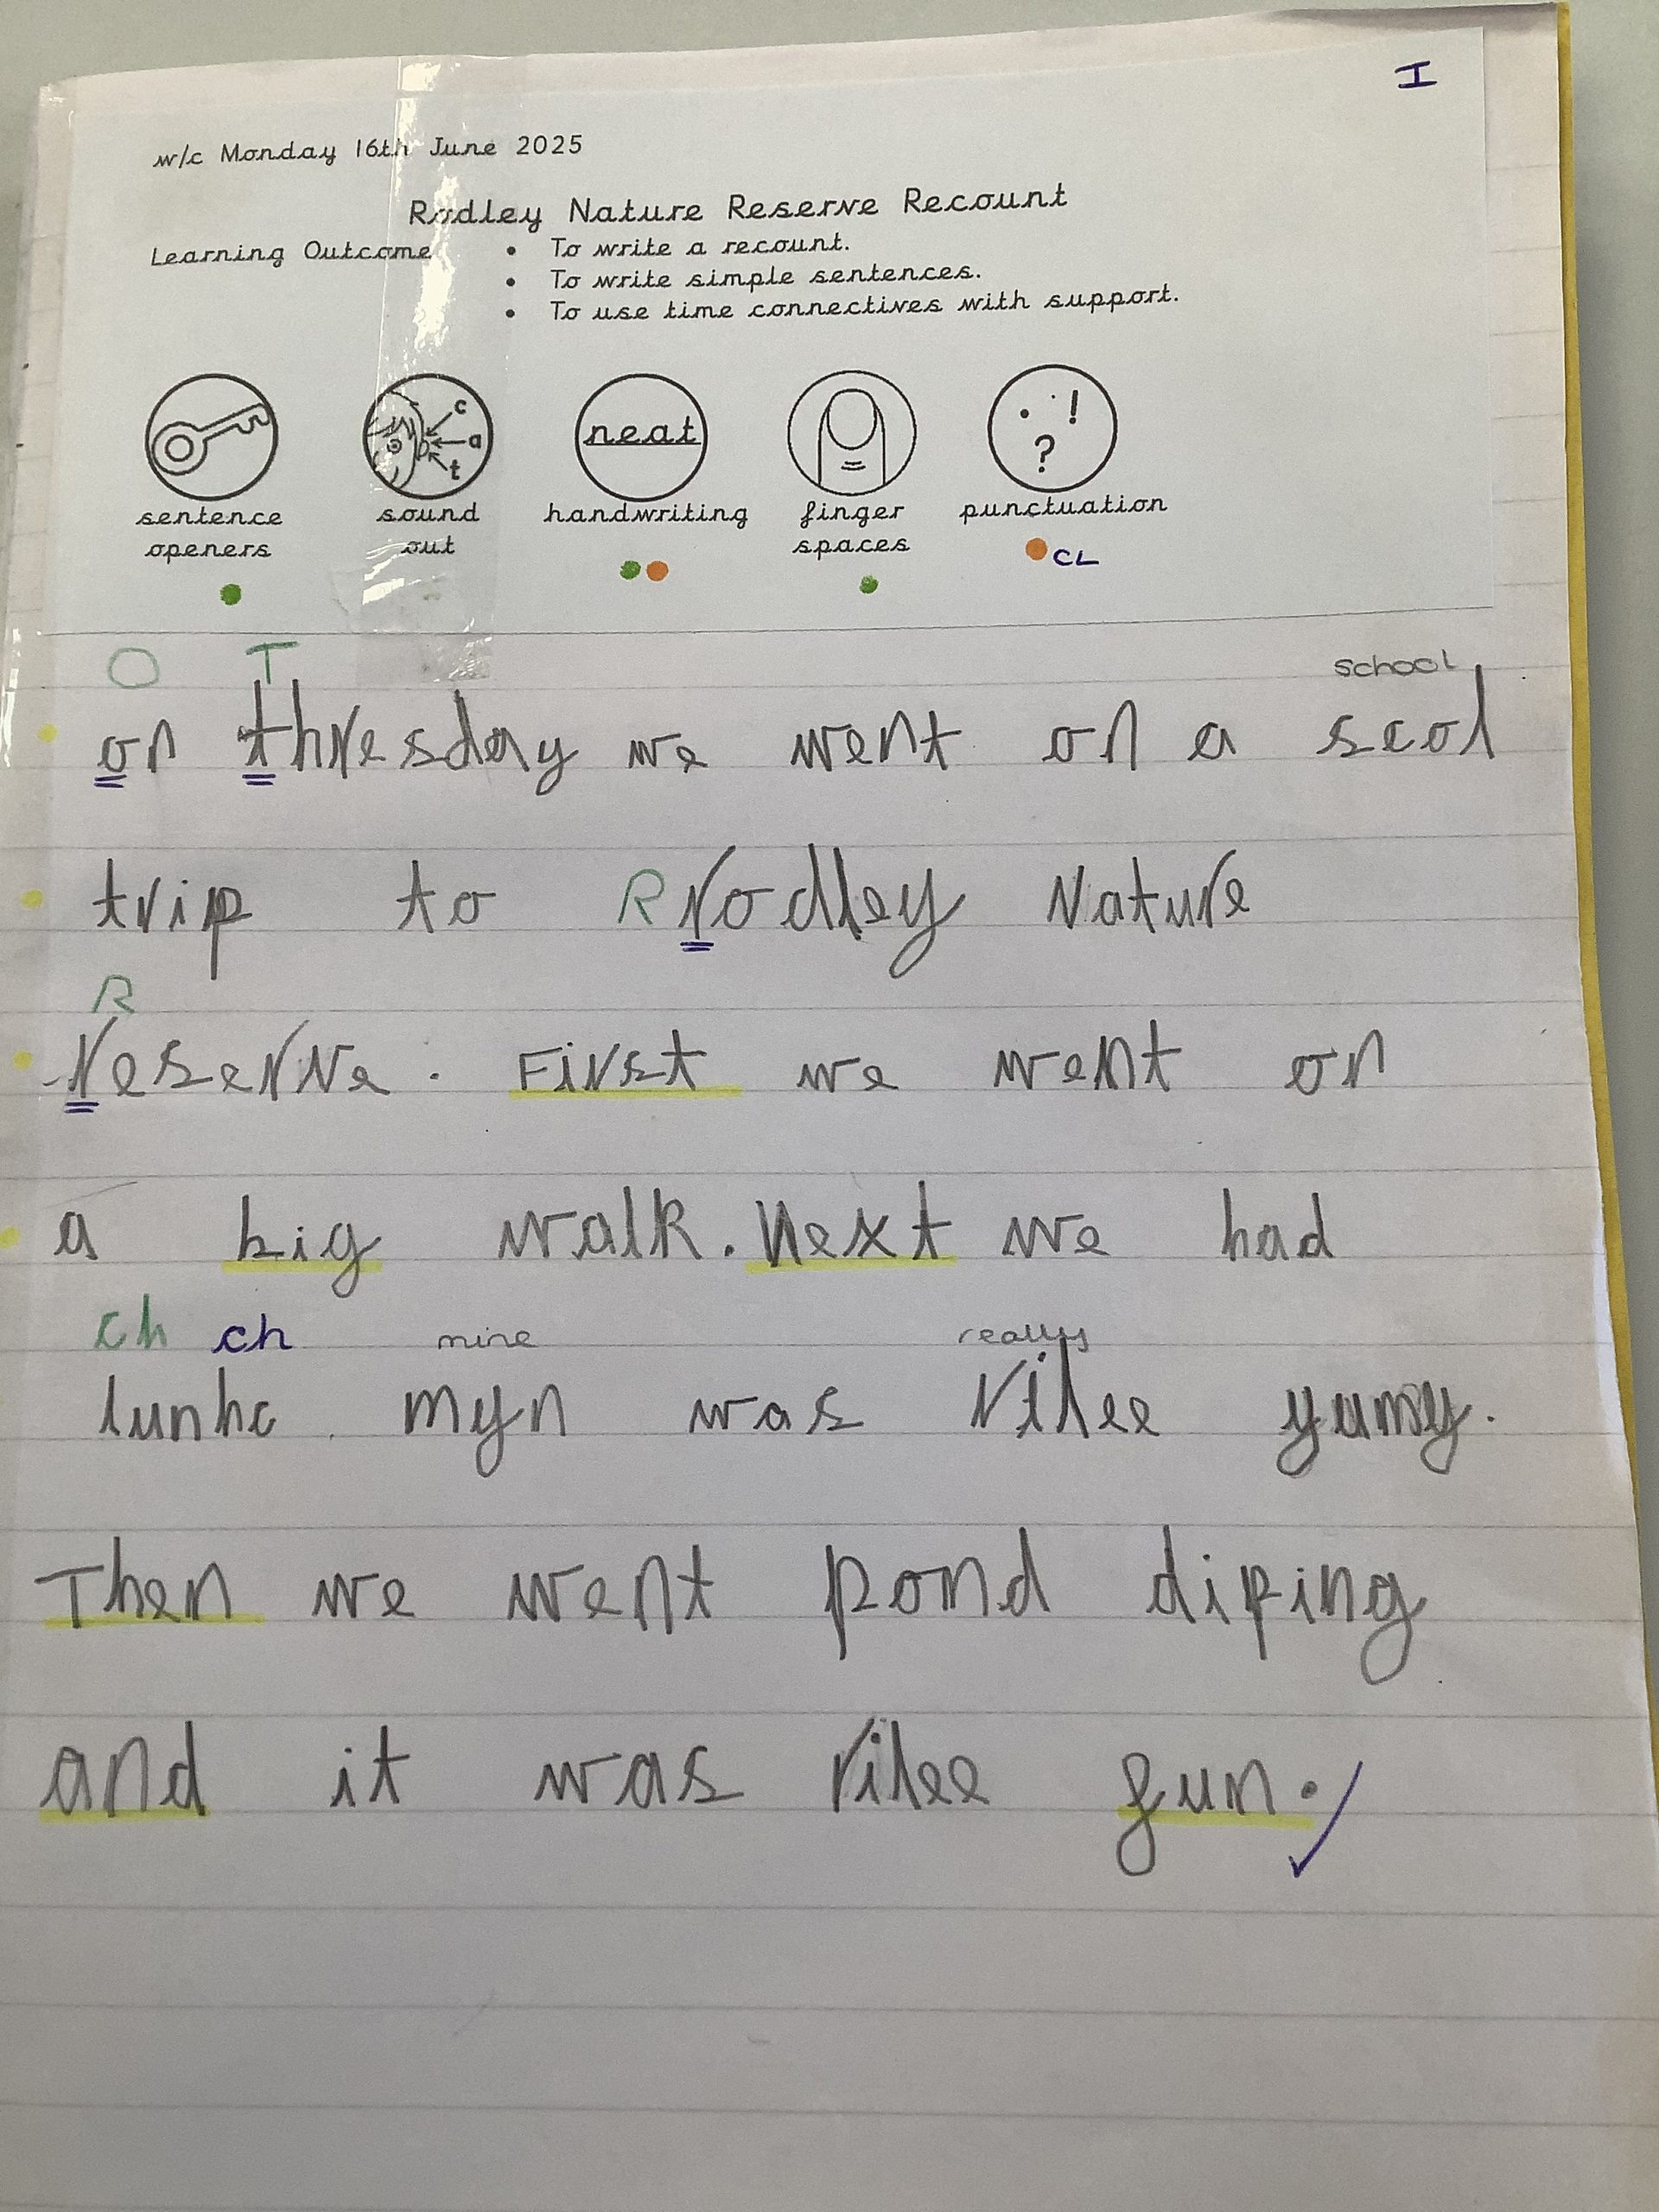 I
w/c Monday 16th June 2025
Rodley Nature Reserve Recount
Learning Outcome • To write a recount.
• To write simple sentences.
• To use time connectives with support.
c
a
t
neat
. ! ?
sentence openers
sound out
handwriting
finger spaces
punctuation
CL
O T school
on thresday we went on a scol
trip to R rodley Nature
R
reserve. First we went on
a big walk. Next we had
ch ch mine really
lunhc. myn was rilee yumy.
Then we went pond diping
and it was rilee fun.